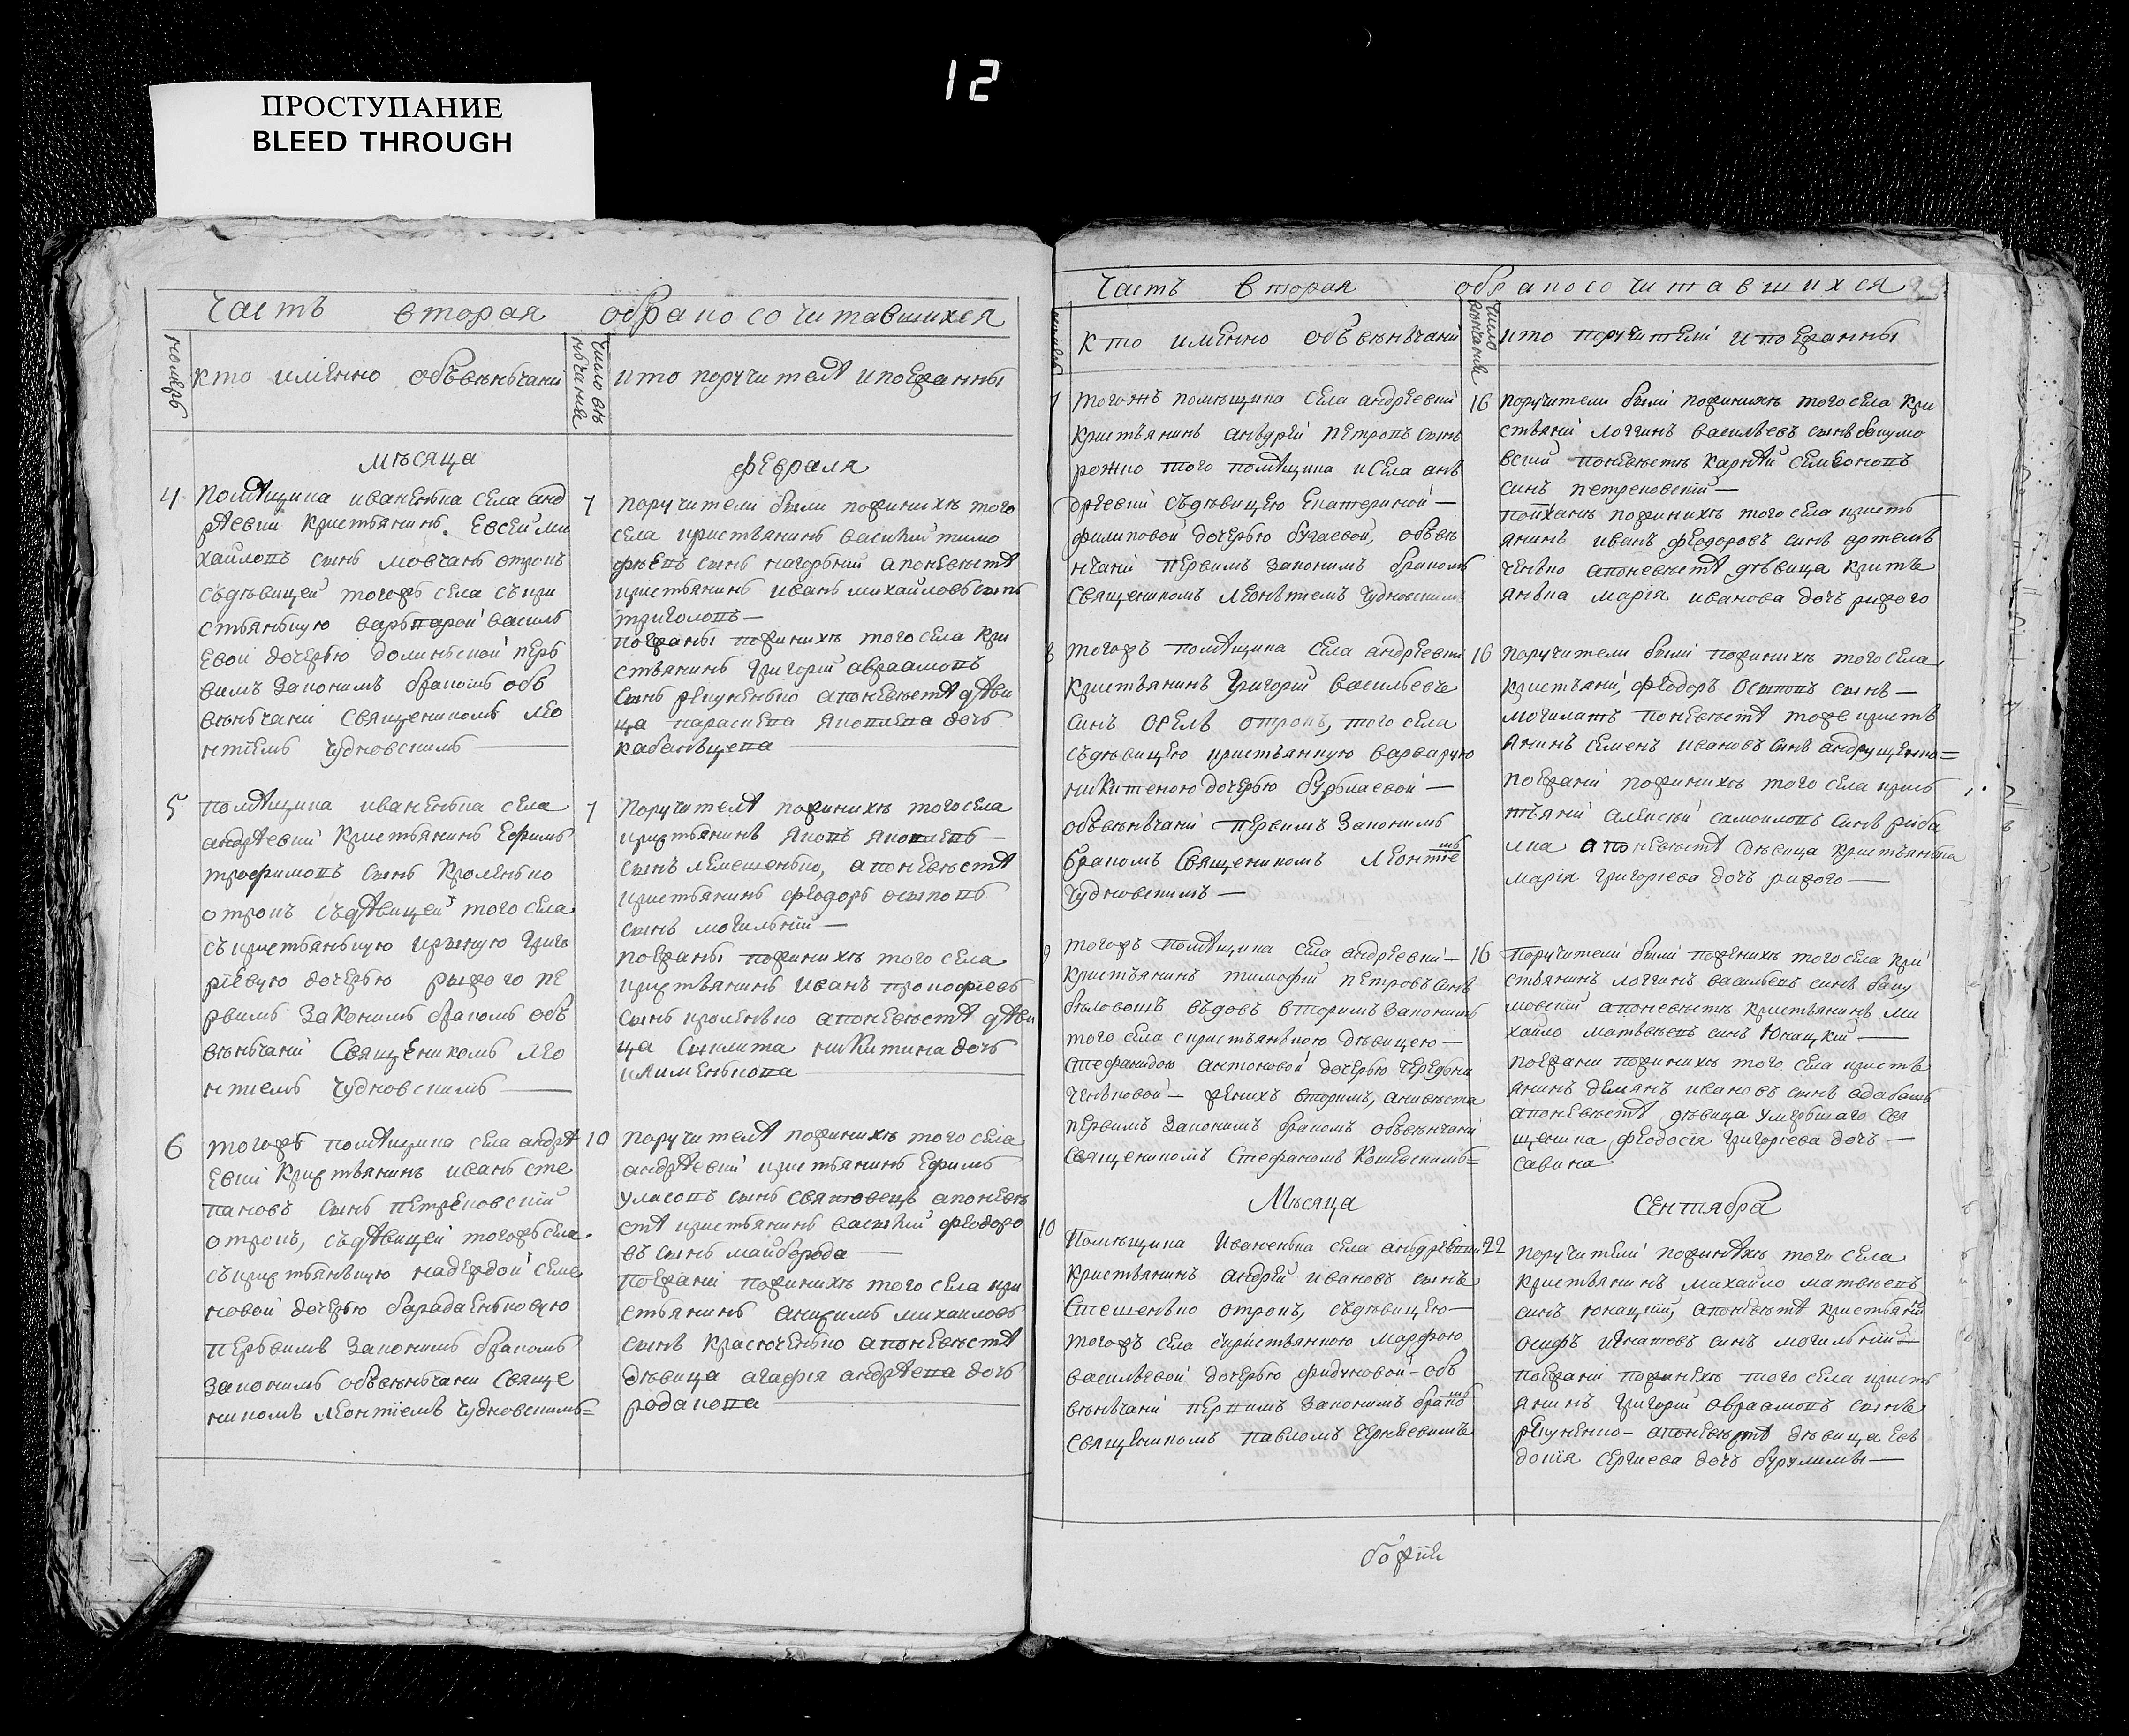 12
ПРОСТУПАНИЕ
BLEED THROUGH
Часть вторая обракосочитавшихся
номеръ
кто именно объвѣнъчани
число вѣнъчания
кто поручителѣ и поезжанны
мѣсяца февраля
4
помѣщика иваненька села анд
рѣевки кристьянинъ Евсей ми
хайловъ сынъ мовчанъ отрокъ
съдѣвицей тогожъ села съкри
стьянъкую варъварой василь
евой дочерью долинъской перъ
вимъ закономъ бракомъ объ
вѣнъчани священикомъ лео
нтиемъ чудновскимъ
7
поручители были пожинихѣ того
села кристьянинъ василий тимо
фѣевъ сынъ нагорний апоневѣстѣ
кристьянинъ иванъ михайловъ сынъ
триголовъ
поезжаны пожинихѣ того села кри
стьянинъ григорий авраамовъ
сынъ репукенько апоневѣстѣ дѣви
ца параскева яковлева дочь
кабанъцева
5
помѣщика иваненька села
андрѣевки кристьянинъ Ефимъ
трофимовъ сынъ кроленько
отрокъ съдѣвицей того села
съкристьянъкую ириную григо
риевую дочерью рыжого пе
рвимъ закономъ бракомъ объ
вѣнъчани священикомъ лео
нтиемъ чудновскимъ
7
поручителѣ пожинихѣ того села
кристьянинъ яковъ яковлевъ
сынъ лемешенько, апоневѣстѣ
кристьянинъ феодоръ осиповъ
сынъ могильний
поезжаны пожинихѣ того села
кристьянинъ иванъ прокофиевъ
сынъ кроленько апоневѣстѣ дѣви
ца никитина дочь
клименькова
6
тогожъ помѣщика села андрѣ
евки кристьянинъ иванъ сте
пановъ сынъ петреновский
отрокъ, съдѣвицей тогожъ села
съкристьянъкую надеждой семе
новой дочерью барабаеньковую
перъвимъ закономъ бракомъ
закономъ объвѣнъчани свяще
никомъ леонтиемъ чудновскимъ
10
поручителѣ пожинихѣ того села
андрѣевки кристьянинъ Ефимъ
уласовъ сынъ святовецъ апоневѣ
стѣ кристьянинъ василий феодоро
въ сынъ майборода
поезжани пожинихѣ того села кри
стьянинъ михаиловъ
сынъ красюченько апоневѣстѣ
дѣвица агафия андрѣева дочь
родакова
Часть вторая обракосочитавшихся
кто именно объвѣнъчани
число вѣнчания
кто поручители и поезжанны
7
тогожъ помѣщика села андреевки
кристьянинъ анъдрей петровъ сынъ
рожко того помѣщика и села анъ
дреевки съдѣвицею Екатериной
филиповой дочерью бугаевой, объвѣ
нчани первимъ закономъ бракомъ
священикомъ леонътиемъ чудновским
16
поручители были пожинихѣ того села кри
стьяни логгинъ васильевъ сынъ бакумо
вский поневѣстѣ карпъй семеоновъ
синъ петреновский
поезжанъ пожинихѣ того села кристь
янинъ иванъ феодоровъ синъ артемъ
ченько апоневѣстѣ дѣвица критья
янъка мария иванова дочъ рижого
8
тогожъ помѣщика села андреевки
кристьянинъ григорий васильевъ
синъ орелъ отрокъ, того села
съдѣвицею кристьянкую варварую
никитеною дочерью бурлаевой
объвѣнъчани первимъ закономъ
бракомъ священикомъ леонтие мъ
чудновскимъ
16
поручители были пожинихѣ того села
кристьяни, феодоръ осиповъ синъ
могилатъ поневѣстѣ тоже кристь
янинъ семенъ ивановъ синъ андрущенко
поезжани пожинихѣ того села крис
тьяни алексѣй самоиловъ синъ риба
лка апоневѣстѣ дѣвица кристьянъка
мария григориева дочъ рижого
9
тогожъ помѣщика села андреевки
кристьянинъ тимофий петровъ синъ
въдовъ вторимъ закономъ
того села скристьянъкою дѣвицею
стефанидою антоновой дочерью
женихъ вторимъ, аневѣста
первимъ закономъ бракомъ объвѣнчани
священикомъ стефаномъ
16
поручители были пожинихѣ того села кри
стьянинъ логгинъ васильевъ синъ баку
мовский апоневѣстѣ кристьянинъ ми
хайло матвѣевъ синъ Юнацкий
поезжани пожинихѣ того села кристь
янинъ демянъ ивановъ синъ адабашъ
апоневѣстѣ дѣвица умершаго свя
щеника феодосия григориева дочь
савина
Мѣсяца Сентября
10
Помѣщика Иваненька села анъдреевки
кристьянинъ андрей ивановъ сынъ
стешенько отрокъ, съдѣвицею
тогожъ села скристьянкою марфою
васильевой дочерью фидчковой объ
вѣнъчани первимъ закономъ брако мъ
священикомъ павломъ черниевимъ
22
поручители пожинихѣ того села
кристьянинъ михайло матвѣевъ
синъ юнацкий, апоневѣстѣ кристьяни
осифъ игнатовъ синъ могильний
поезжани пожинихѣ того села кристь
янинъ григорий авраамовъ синъ
репукенко апоневѣстѣ дѣвица евъ
докия сергиева дочъ
божии